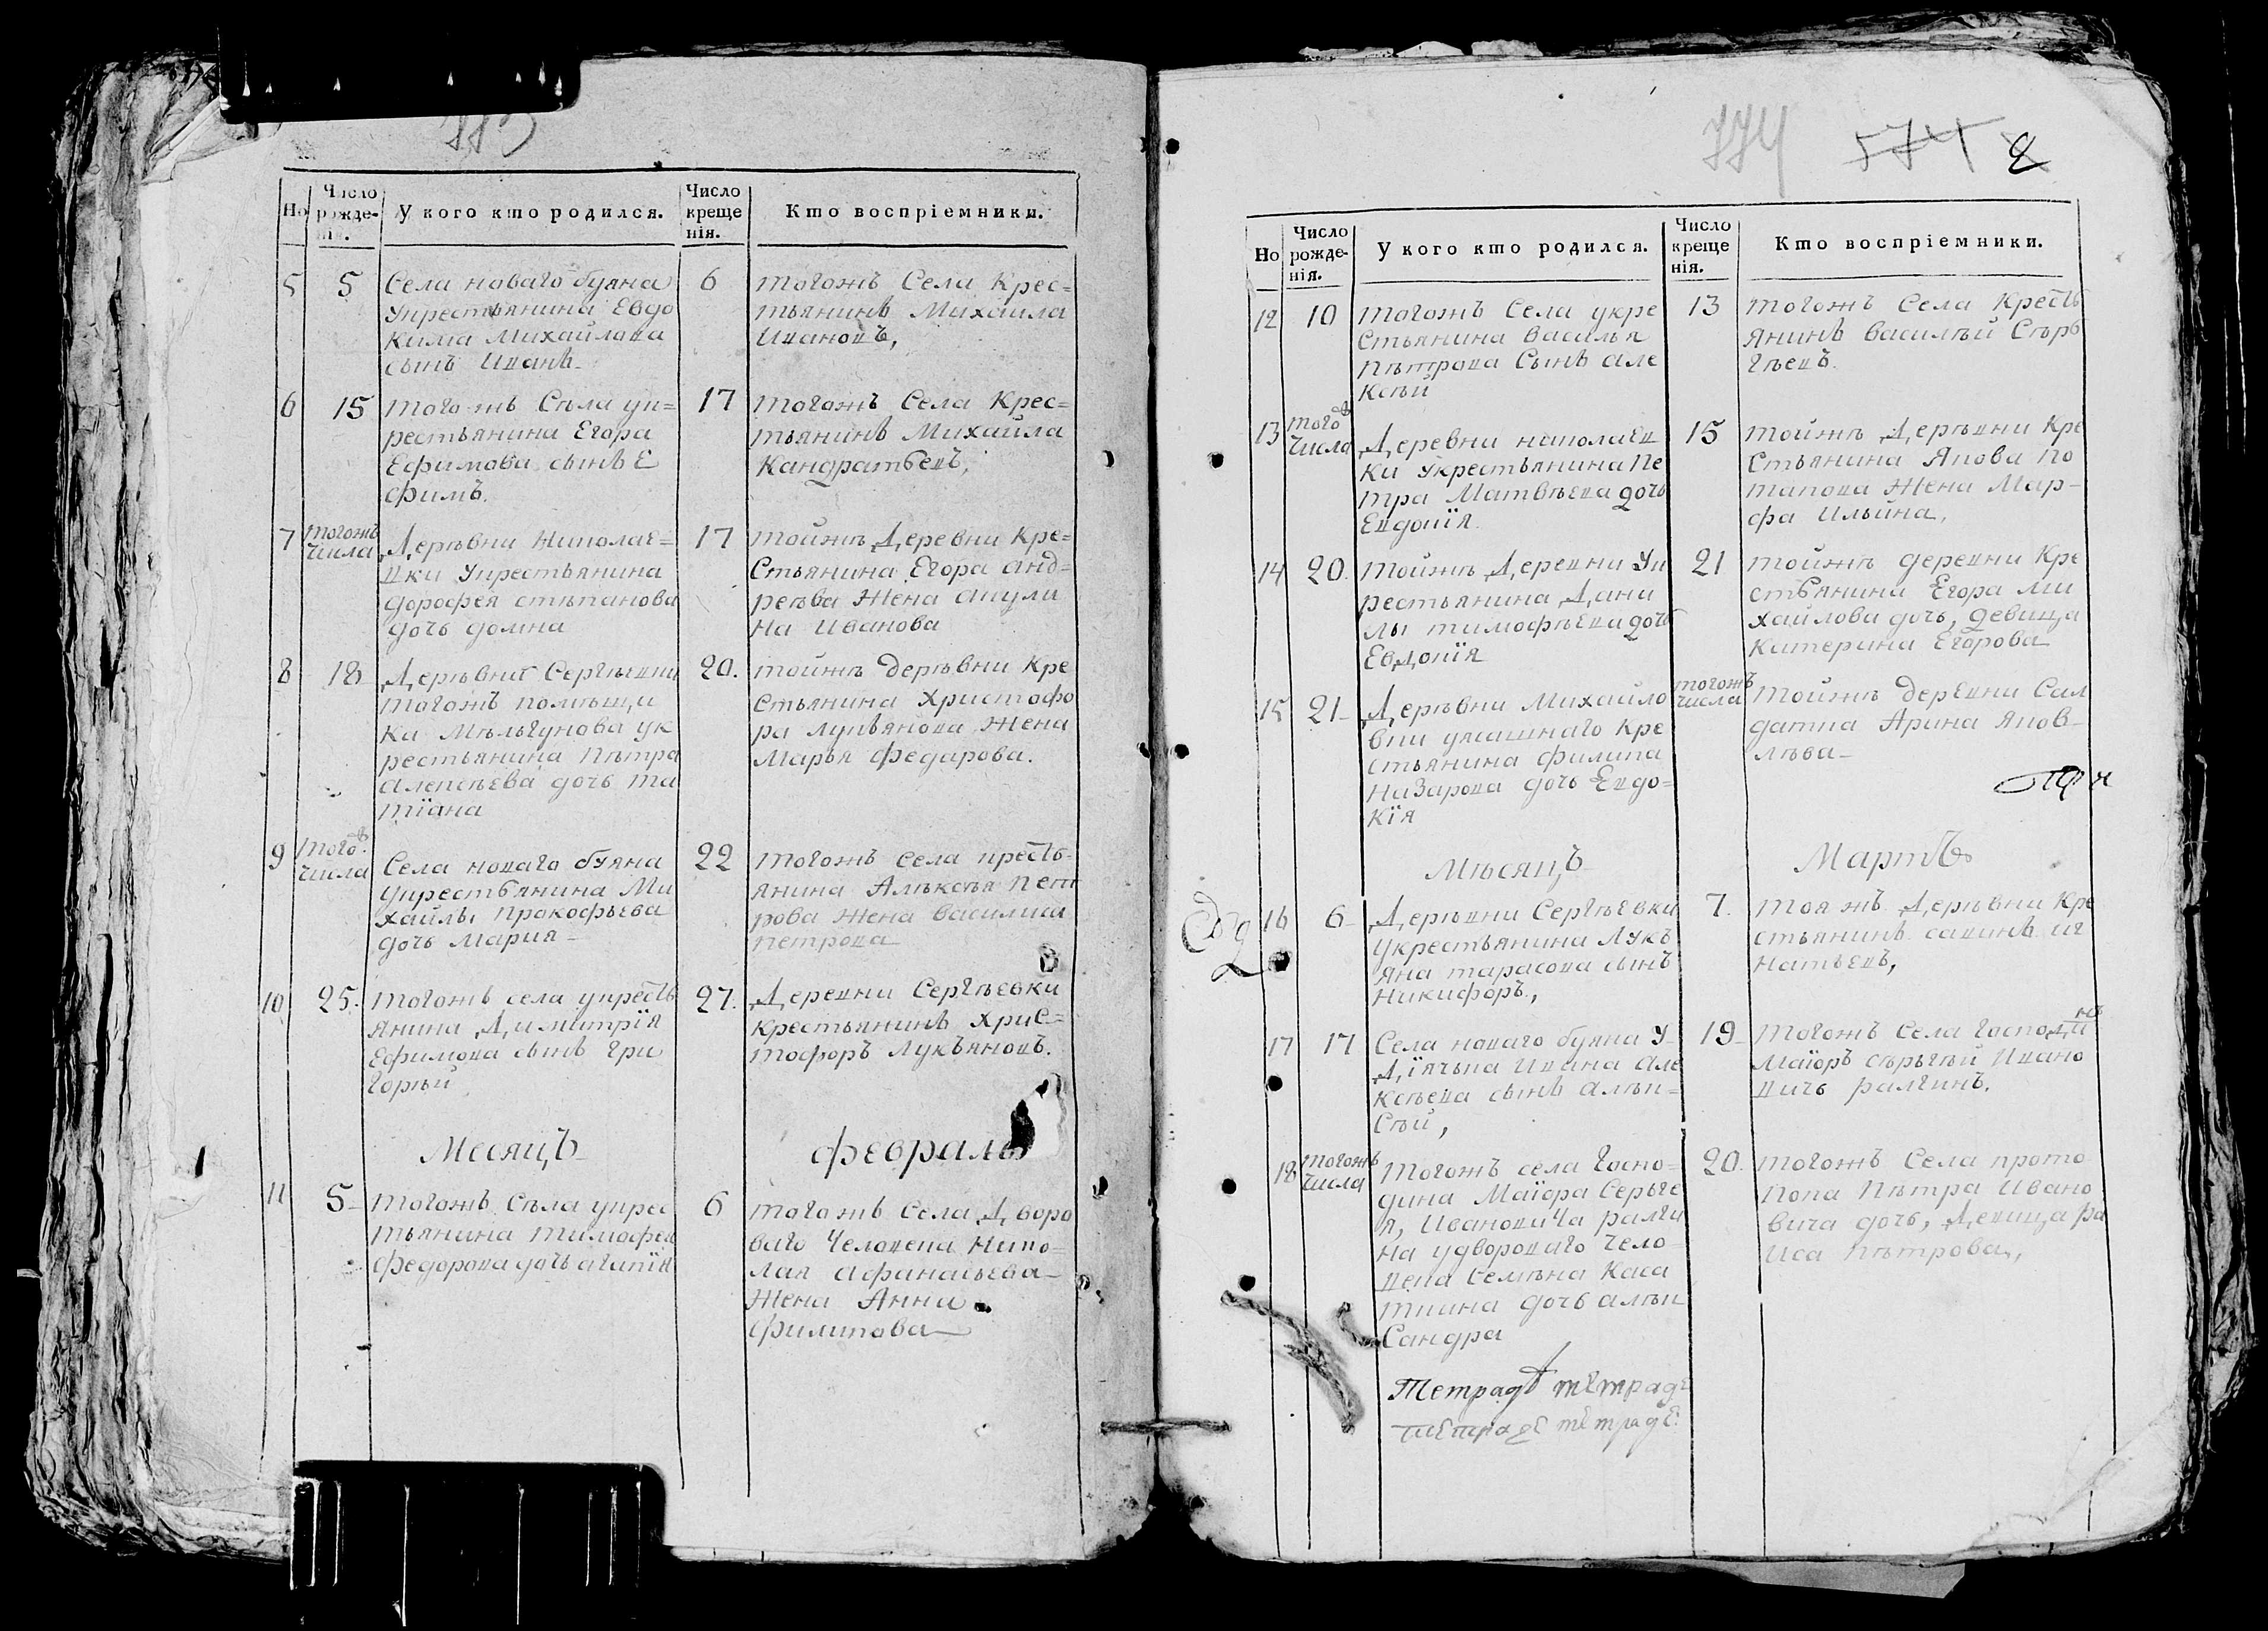 Но
Число рожде-нія.
У кого кто родился.
Число креще нія.
Кто воспріемники.
5
5
Села новаго буяна
укрестьянина Евдо
кима Михайлова
сынъ Иванъ
6
тогожъ Села Крес=
тьянинъ Михайла
Ивановъ,
6
15
тогожъ Сѣла ук=
рестьянина Егора
Ефимова сынъ Е
фимъ.
17
тогожъ Села Крес=
тьянинъ Михайла
Кандратьевъ,
7
тогожъ
числа
Дерѣвни Николае=
вки укрестьянина
дорофея стѣпанова
дочь домна
17
тойжъ Деревни Кре=
стьянина Егора анд=
рѣева жена акули
на Иванова
8
18
Дерѣвни Сергѣвки
тогожъ помѣщи
ка Мѣльгунова ук
рестьянина Пѣтра
алексѣева дочь та
тїана
20.
тойжъ дерѣвни Кре
стьянина Христофо
ра лукьянова жена
Марья Федарова.
9
того
числа
Села новаго буяна
укрестьянина Ми
хайлы Прокофьева
дочь Мария
22
тогожъ Села кресть
янина Алѣксѣя Пет
рова жена василиса
петрова
10
25.
тогожъ села укресть
янина Димитрїя
Ефимова сынъ гри
горѣй
27.
Деревни Сергѣевки
крестьянинъ хрис=
тофоръ Лукъяновъ.
Месяцъ
февраль
11
5
тогожъ Сѣла укрес
тьянина тимофея
федорова дочь агапїя
6
тогожъ села Дворо
ваго человека Нико=
лая афанасьева
жена Анна
филипова
774
574
8
Но
Число рожде-нія.
У кого кто родился.
Число креще нія.
Кто воспріемники.
12
10
тогожъ Села укре
стьянина василья
пѣтрова Сынъ але
ксѣй
13
тогожъ Села Кресть
янинъ василѣй Сѣрь
гѣевъ.
13
того
числа
Деревни николаев
ки укрестьянина Пе
тра Матвѣева дочь
Евдокїя
15
тойжъ Дерѣвни Кре
стьянина Якова по
тапова жена Мар-
фа Ильина,
14
20.
тойжъ Деревни ук
рестьянина Дани
лы тимофѣева дочь
Евдокїя
21
тойжъ деревни Кре
стьянина Егора Ми
хайлова дочь, девица
Катерина Егорова
15
21
Дерѣвни Михайло
вки укрестьянина
Филипа
Назарова дочь Евдо=
кїя
тогожъ
числа
тойжъ деревни Сал
датка Арина яков
лѣва
Мѣсяцъ
Мартъ
16
6
Дерѣвни Сергѣевки
укрестьянина Лукъ
яна тарасова сынъ
Никифоръ,
7.
тоя жъ Дерѣвни Кре
стьянинъ савинъ иг
натьевъ,
17
17
Села новаго буяна у
Дїячька Ивана але
ксѣева сынъ алѣк=
сѣй,
19
тогожъ Села господинъ
Маїоръ сѣрьгѣй Ивано
вичь ралгинъ.
18
тогожъ
числа
тогожъ села госпо=
дина Маїора Серьге
я, Ивановича ралги
на удвороваго чело
века Семѣна Каса
ткина дочь алѣк
сандра
20.
тогожъ Села прото
попа Пѣтра Ивано
вича дочь, Девица ра
иса пѣтрова,
Тетрадь тетрадъ
тетраде тетраде